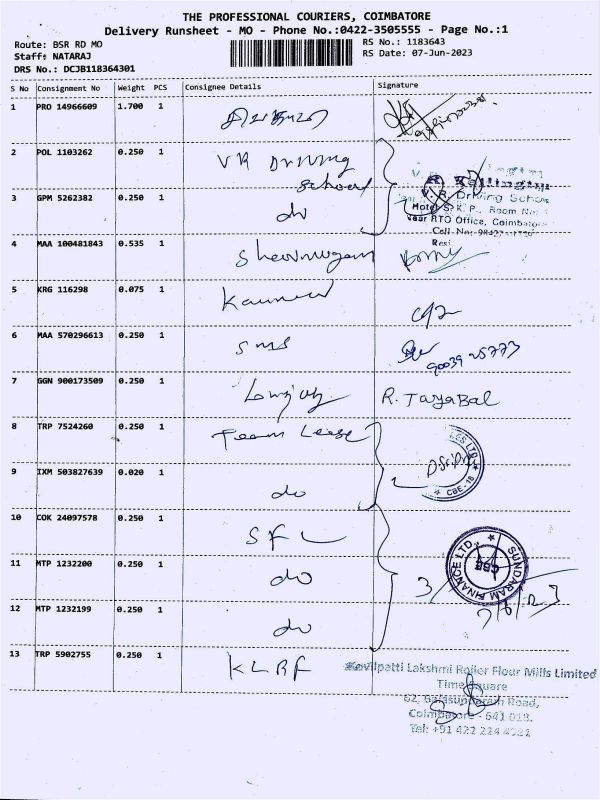 THE PROFESSIONAL COURIERS, COIMBATORE
Delivery Runsheet - MO - Phone No.:0422-3505555 - Page No.:1
Route: BSR RD MO
RS No.: 1183643
Staff: NATARAJ
RS Date: 07-Jun-2023
DRS No.: DCJB118364301
S No Consignment No Weight PCS Consignee Details Signature
1 PRO 14966609 1.700 1
2 POL 1103262 0.250 1 VR Driving
School
V. R. Driving School
3 GPM 5262382 0.250 1 do
Motel S. K. P., Room No:
Near RTO Office, Coimbatore
Cell No:
Resi
4 MAA 100481843 0.535 1 Shanmugam
5 KRG 116298 0.075 1
6 MAA 570296613 0.250 1 SMS
90039 25773
7 GGN 900173509 0.250 1 R. Tayabal
8 TRP 7524260 0.250 1 Team Lease
LTD.
CBE-18
9 IXM 503827639 0.020 1 do
10 COK 24097578 0.250 1 SFL
SUNDARAM FINANCE LTD.,
CBE
11 MTP 1232200 0.250 1 do
3
7/6/23
12 MTP 1232199 0.250 1 do
13 TRP 5902755 0.250 1 KLRF
Kovilpatti Lakshmi Roller Flour Mills Limited
Time Square
62, Balasundaram Road,
Coimbatore - 641 018.
Tel: +91 422 224 4021